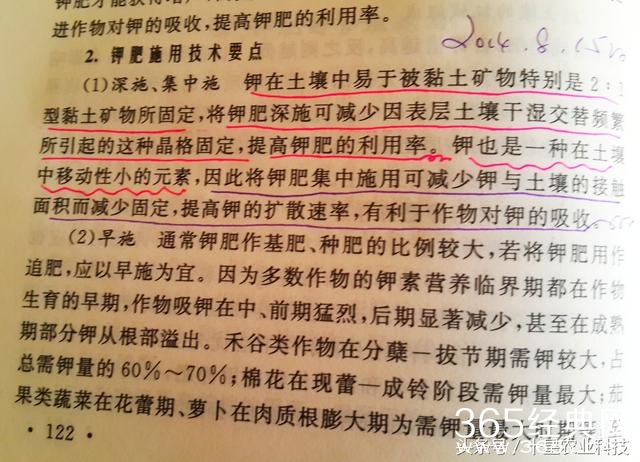 进作物对钾的吸收,提高钾肥的利用率。
2. 钾肥施用技术要点
2014.8.15
(1)深施、集中施 钾在土壤中易于被黏土矿物特别是2:1
型黏土矿物所固定,将钾肥深施可减少因表层土壤干湿交替频繁
所引起的这种晶格固定,提高钾肥的利用率。钾也是一种在土壤
中移动性小的元素,因此将钾肥集中施用可减少钾与土壤的接触
面积而减少固定,提高钾的扩散速率,有利于作物对钾的吸收。
(2)早施 通常钾肥作基肥、种肥的比例较大,若将钾肥用作
追肥,应以早施为宜。因为多数作物的钾素营养临界期都在作物
生育的早期,作物吸钾在中、前期猛烈,后期显著减少,甚至在成熟
期部分钾从根部溢出。禾谷类作物在分蘖—拔节期需钾较大,占
总需钾量的60%～70%;棉花在现蕾—成铃阶段需钾量最大;茄
果类蔬菜在花蕾期、萝卜在肉质根膨大期为需钾
·122·
365经典网
农业科技